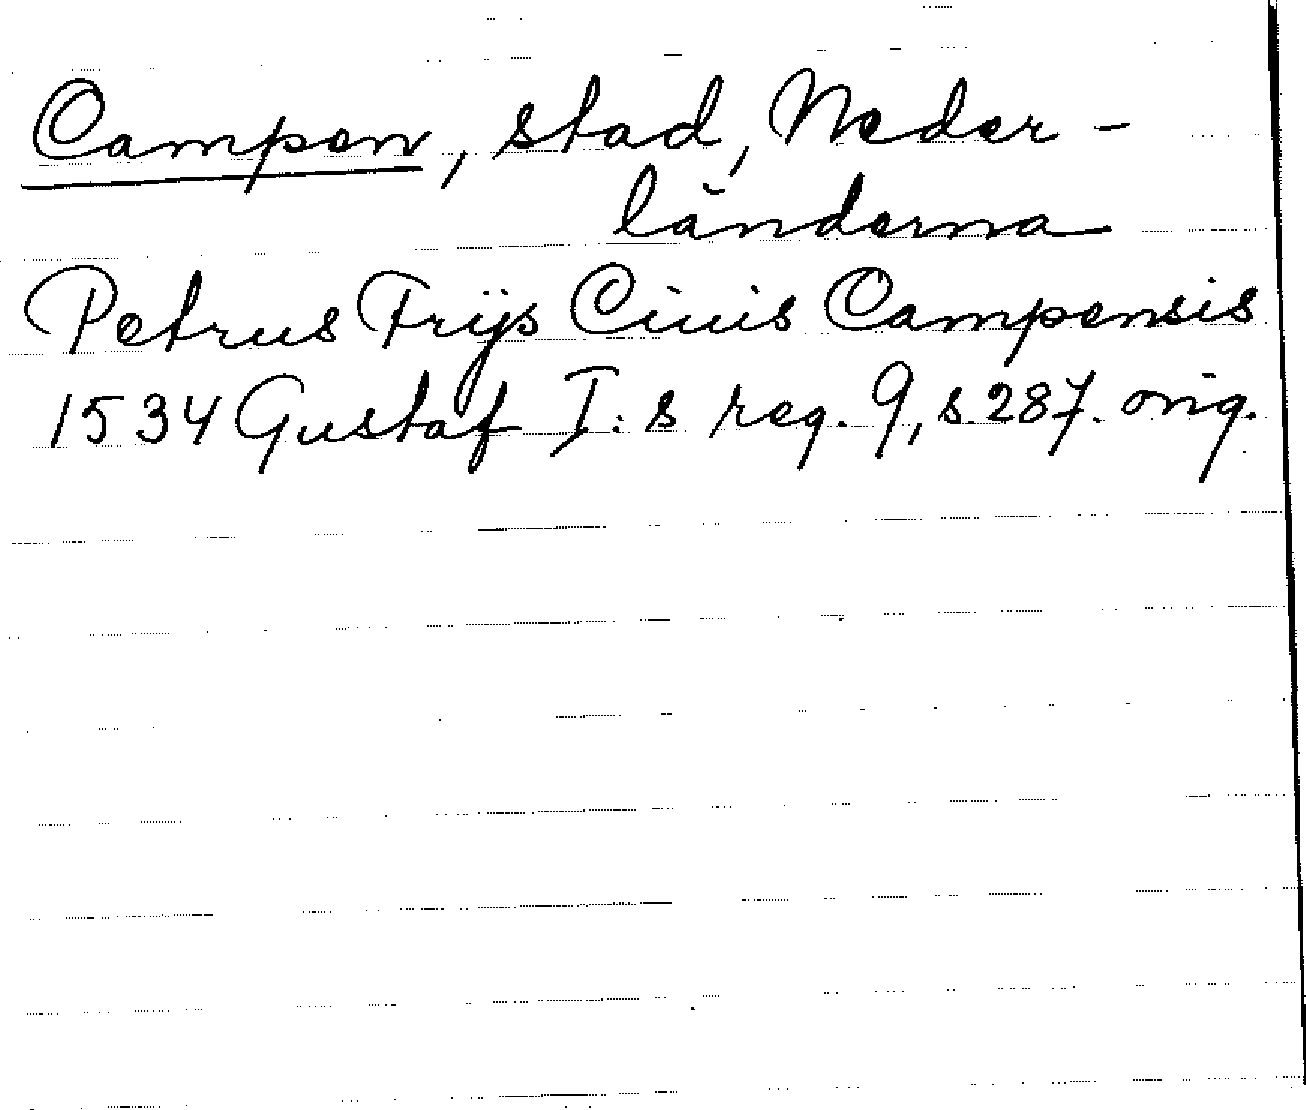 Campen, stad, Neder-
länderna
Petrus Frijs Ciuis Campensis
1534 Gustaf I:s reg. 9, s. 287. orig.